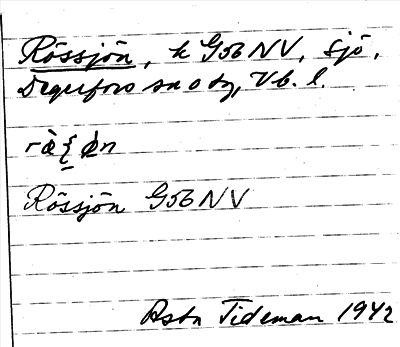 Rössjön, k G56 NV, sjö,
Degerfors sn o tg, Vb. l.
Rössjön G56 NV
Asta Tideman 1942